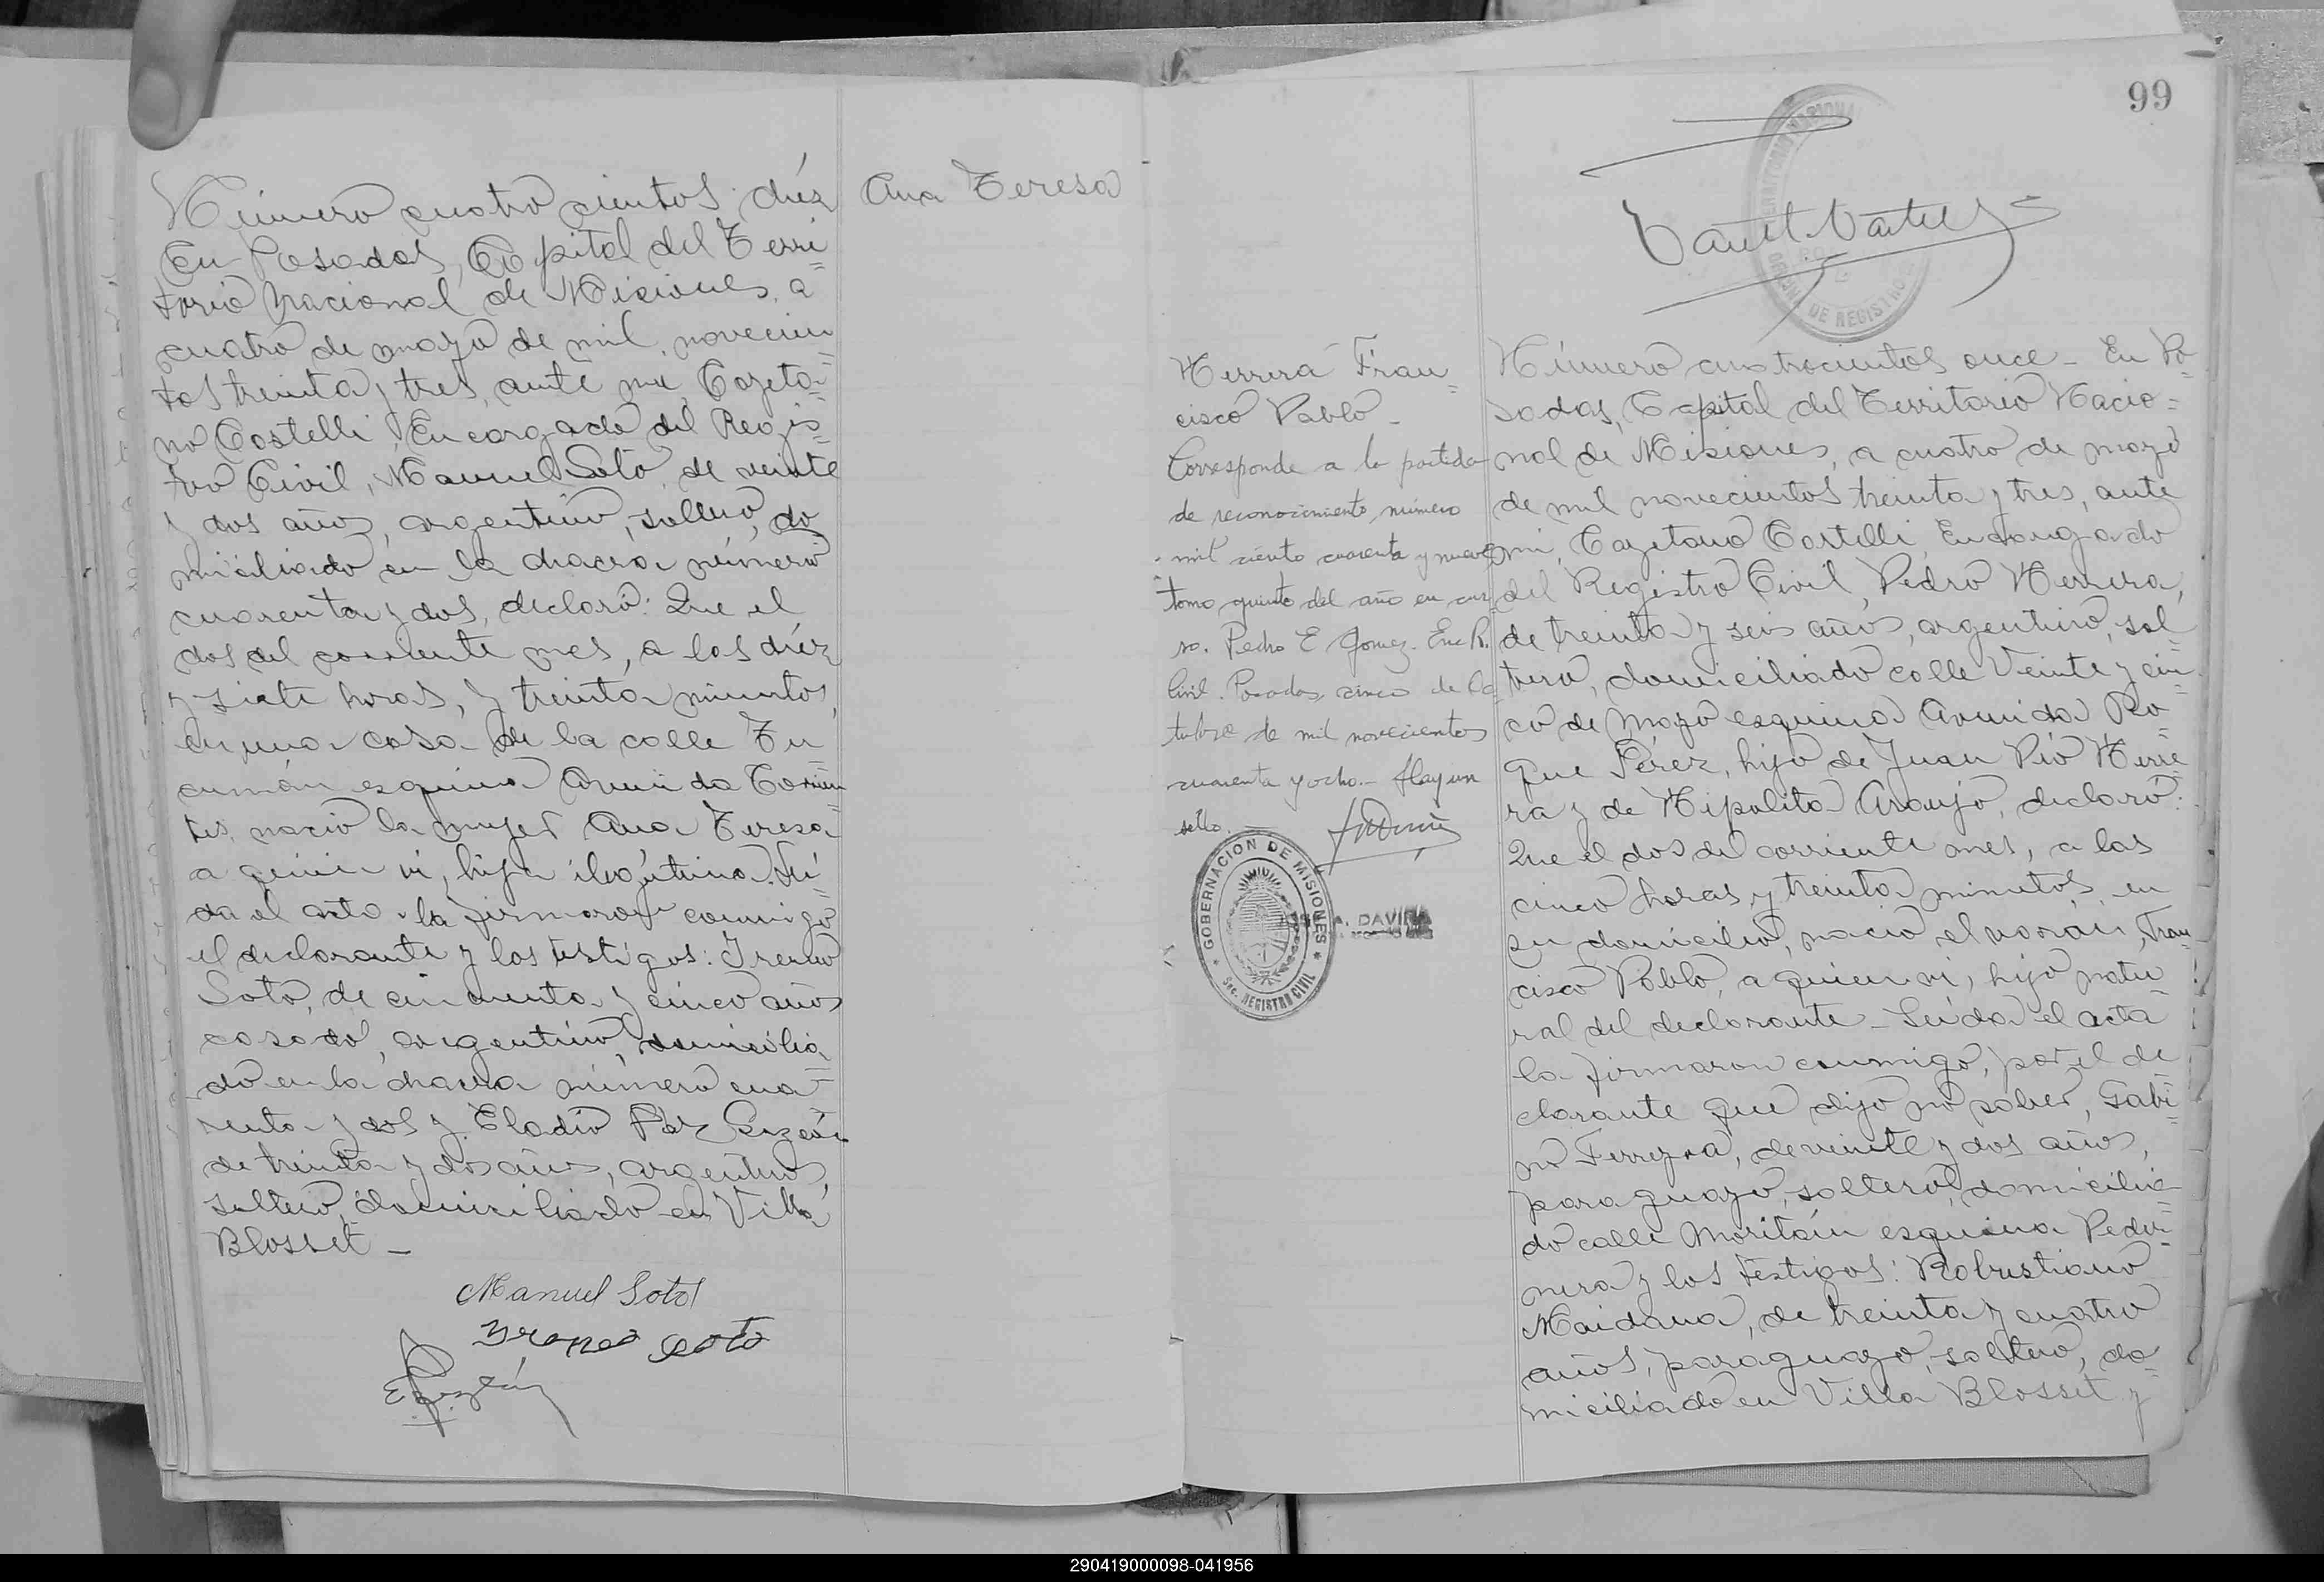 Número cuatro cientos diéz
En Posadas, Capital del Terri=
torio Nacional de Misiones, a
cuatro de mayo de mil novecien=
tos treinta y tres, ante mi, Cayeta=
no Castelli, Encargado del Regis=
tro Civil, Manuel Soto, de veinte
y dos años, argentino, soltero, do=
miciliado en la chacra número
cuarenta y dos, declaró: Que el
dos del corriente mes, a las diéz
y siete horas, y treinta minutos,
en una casa de la calle Tu=
cumán esquina Avenida Corrien=
tes, nació la mujer Ana Teresa
a quien vi, hija ilegítima. Leí=
da el acta la firmaron conmigo
el declarante y los testigos: Ireneo
Soto, de cincuenta y cinco años
casado, argentino, domicilia
do en la chacra número cua=
renta y dos y Eladio
de treinta y dos años, argentino,
soltero, domiciliado en Villa
Blosset –
Manuel Soto
Ireneo Soto
Ana Teresa
99
DE REGISTRO
Herrera Fran=
cisco Pablo –
Corresponde a la partida
de reconocimiento, número
mil ciento cuarenta y nueve
tomo quinto del año en cur
so. Pedro E Gomez. Enc R.
Civil. Posadas, cinco de Oc
tubre de mil novecientos
cuarenta y ocho.– Hay un
sello.
GOBERNACION DE MISIONES
Sec. REGISTRO CIVIL
Número cuatrocientos once – En Po=
sadas, Capital del Territorio Nacio=
nal de Misiones, a cuatro de mayo
de mil novecientos treinta y tres, ante
mi, Cayetano Castelli, Encargado
del Registro Civil, Pedro Herrera,
de treinta y seis años, argentino, sol=
tero, domiciliado calle Veinte y cin=
co de Mayo esquina Avenida Ro=
que Pérez, hijo de Juan Pío Herre=
ra y de Hipolita Araujo, declaró:
Que el dos del corriente mes, a las
cinco horas y treinta minutos, en
su domicilio, nació el varón, Fran=
cisco Pablo, a quien vi, hijo natu=
ral del declarante – Leída el acta
la firmaron conmigo, por el de=
clarante que dijo no saber, Gabi=
no Ferreyra, de veinte y dos años,
paraguayo, soltero, domicilia=
do calle Moritán esquina Peder=
nera y los testigos: Robustiano
Maidana, de treinta y cuatro
años, paraguayo, soltero, do=
miciliado en Villa Blosset y
290419000098-041956